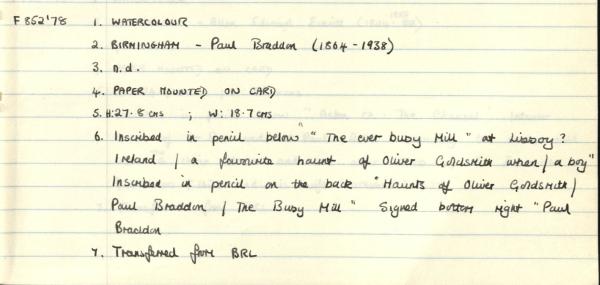 F852'78 1. WATERCOLOUR
2. BIRMINGHAM - Paul Braddon (1864-1938)
3. n.d.
4. PAPER MOUNTED ON CARD
5. H:27.8 cms ; W: 18.7 cms
6. Inscribed in pencil below "The ever busy Mill" at Lissoy?
Ireland / a favourite haunt of Oliver Goldsmith when / a boy"
Inscribed in pencil on the back "Haunts of Oliver Goldsmith /
Paul Braddon / The Busy Mill" Signed bottom right "Paul
Braddon
7. Transferred from BRL